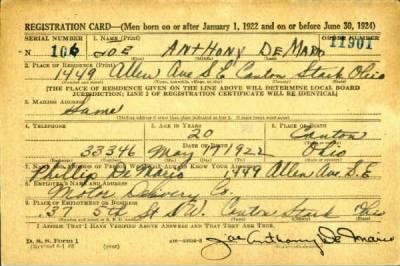 REGISTRATION CARD—(Men born on or after January 1, 1922 and on or before June 30, 1924)
SERIAL NUMBER 1. NAME (Print) ORDER NUMBER
106 JOE ANTHONY DE MARIO 11901
(First) (Middle) (Last)
2. PLACE OF RESIDENCE (Print)
1449 Allen Ave S.E Canton Stark Ohio
[THE PLACE OF RESIDENCE GIVEN ON THE LINE ABOVE WILL DETERMINE LOCAL BOARD
JURISDICTION; LINE 2 OF REGISTRATION CERTIFICATE WILL BE IDENTICAL]
3. MAILING ADDRESS
Same
4. TELEPHONE 5. AGE IN YEARS 6. PLACE OF BIRTH
20 Canton
DATE OF BIRTH
33346 May 1922 Ohio
Phillip De Mario 1449 Allen Ave. S.E
8. EMPLOYER'S NAME AND ADDRESS
Motor Delivery Co.
9. PLACE OF EMPLOYMENT OR BUSINESS
137 5th St S.W. Canton Stark Ohio
I AFFIRM THAT I HAVE VERIFIED ABOVE ANSWERS AND THAT THEY ARE TRUE.
D. S. S. Form 1
Joe Anthony De Mario